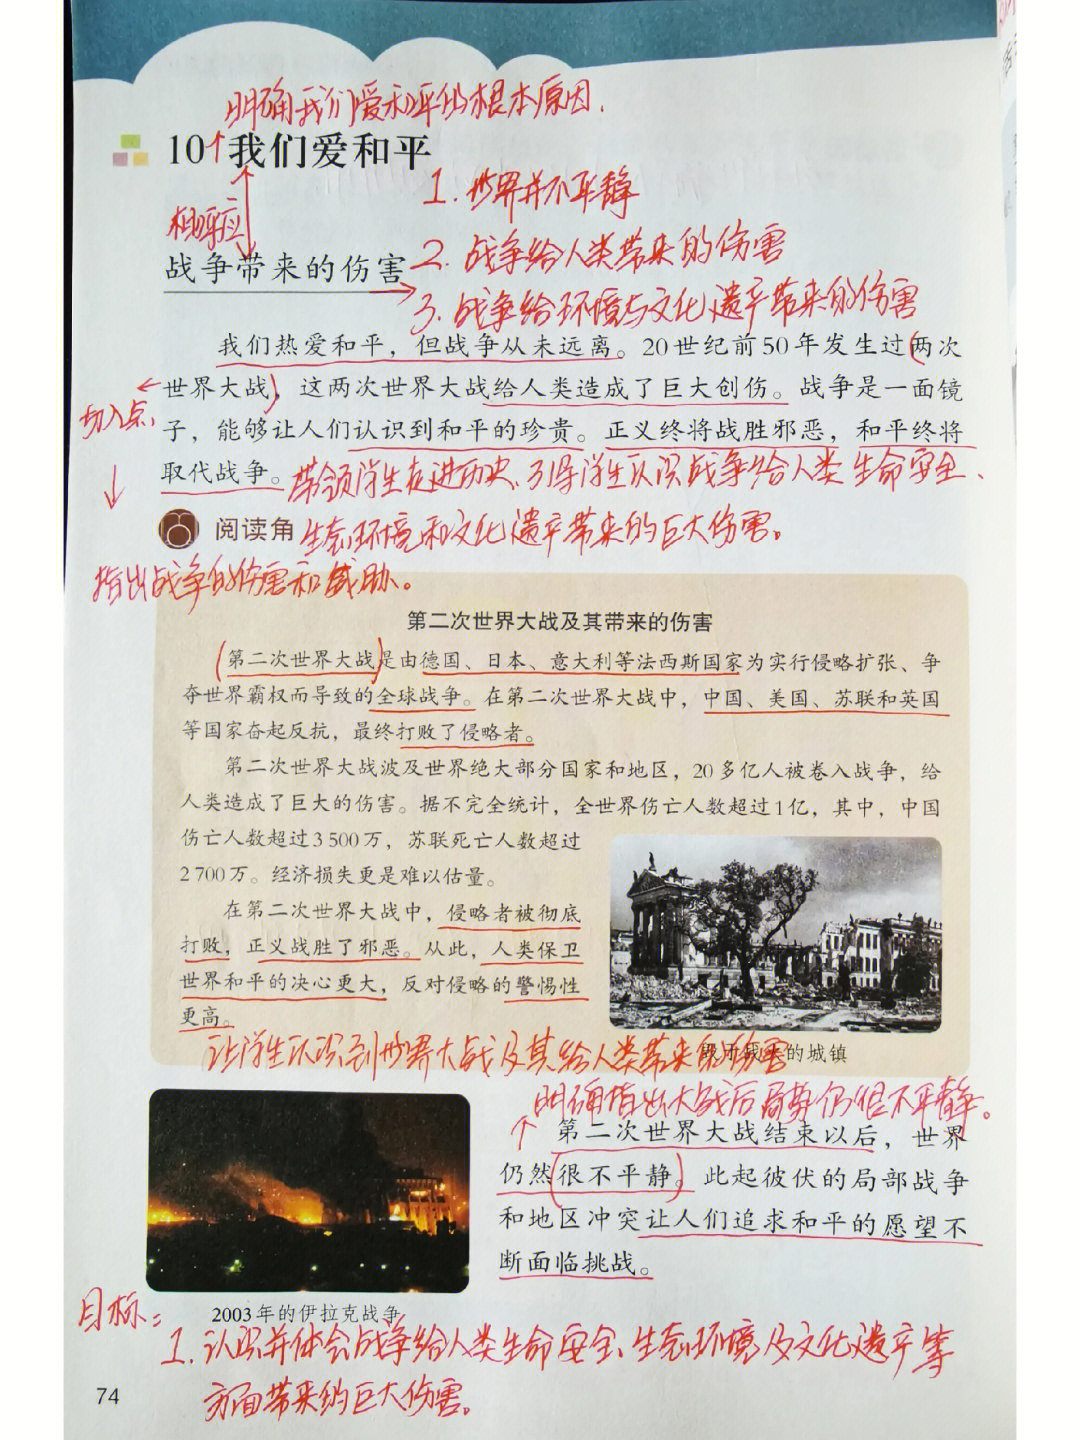 明确我们爱和平的根本原因.
10 我们爱和平
1. 世界并不平静
相呼应
2. 战争给人类带来的伤害
战争带来的伤害
3. 战争给环境与文化遗产带来的伤害
我们热爱和平，但战争从未远离。20世纪前50年发生过两次
世界大战，这两次世界大战给人类造成了巨大创伤。战争是一面镜
切入点、
子，能够让人们认识到和平的珍贵。正义终将战胜邪恶，和平终将
取代战争。
带领学生走进历史、引导学生认识战争给人类生命安全、
阅读角
生态环境和文化遗产带来的巨大伤害。
指出战争的伤害和威胁。
第二次世界大战及其带来的伤害
第二次世界大战是由德国、日本、意大利等法西斯国家为实行侵略扩张、争
夺世界霸权而导致的全球战争。在第二次世界大战中，中国、美国、苏联和英国
等国家奋起反抗，最终打败了侵略者。
第二次世界大战波及世界绝大部分国家和地区，20多亿人被卷入战争，给
人类造成了巨大的伤害。据不完全统计，全世界伤亡人数超过1亿，其中，中国
伤亡人数超过3 500万，苏联死亡人数超过
2 700万。经济损失更是难以估量。
在第二次世界大战中，侵略者被彻底
打败，正义战胜了邪恶。从此，人类保卫
世界和平的决心更大，反对侵略的警惕性
更高。
让学生认识到世界大战及其给人类带来的伤害
毁于战火的城镇
明确指出大战后局势仍很不平静。
第二次世界大战结束以后，世界
仍然很不平静。此起彼伏的局部战争
和地区冲突让人们追求和平的愿望不
断面临挑战。
2003年的伊拉克战争
目标：
1. 认识并体会战争给人类生命安全、生态环境及文化遗产等
方面带来的巨大伤害。
74